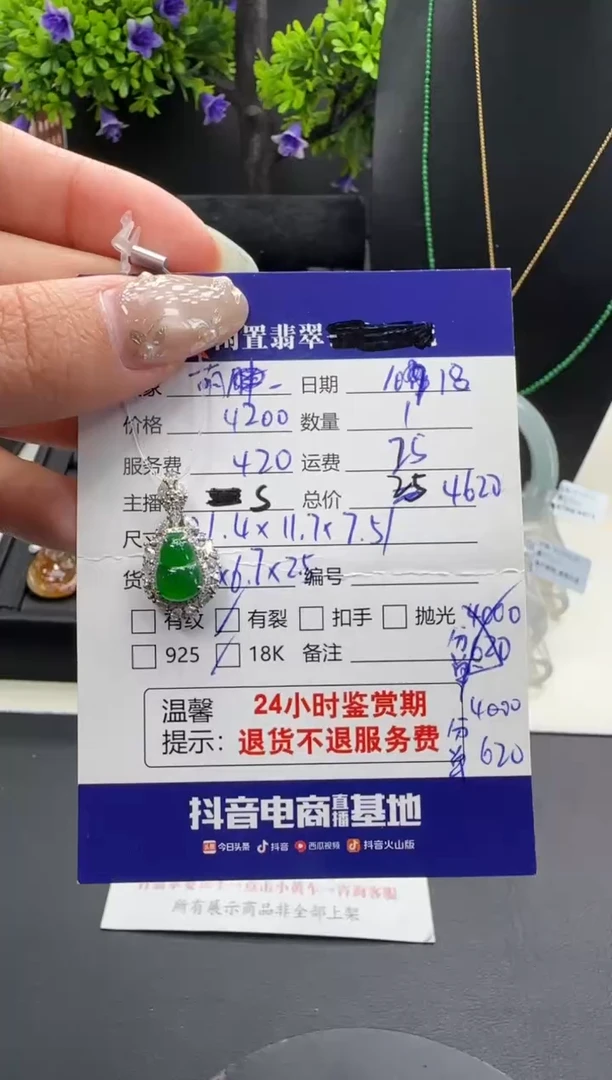 置翡翠
萌 日期 18
价格 4200 数量 1
服务费 420 运费 25
主播 S 总价 25 4620
尺 1.4x11.7x7.5
货 x6.7x25 编号
有纹 有裂 扣手 抛光 4000
620
925 18K 备注
分单 4000
620
温馨提示：
24小时鉴赏期
退货不退服务费
抖音电商直播基地
今日头条 抖音 西瓜视频 抖音火山版
所有展示商品非全部上架